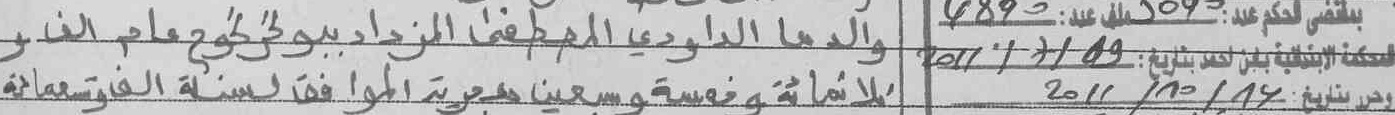 والدها الداودي المصطفى المزداد ببوكركوح عام الف و
ثلاثمائة وخمسة وسبعين هجرية الموافق لسنة الف وتسعمائة
بمقتضى الحكم عدد: 5095 ملف عدد: 4890
المحكمة الابتدائية بابن احمد بتاريخ: 2011/7/19
وحرر بتاريخ: 2011/10/14